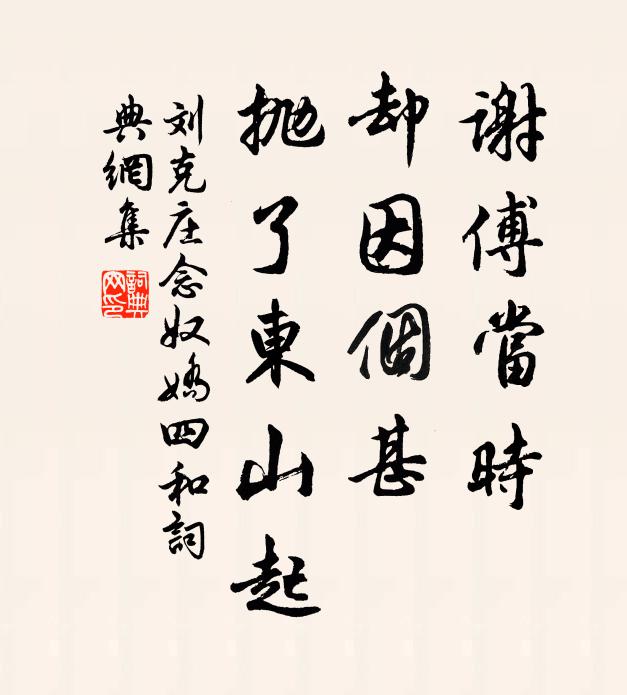 謝傅當時
却因個甚
抛了東山起
刘克庄念奴嬌四和詞
典網集
詞典
网印